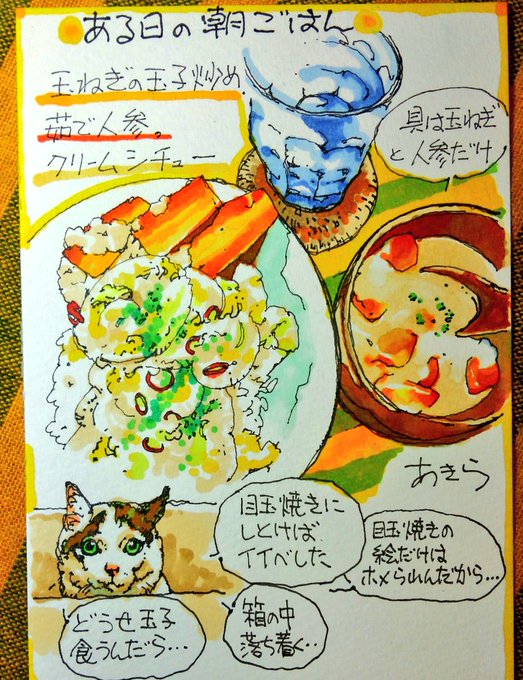 ある日の朝ごはん
玉ねぎの玉子炒め
茹で人参。
クリームシチュー
具は玉ねぎ
と人参だけ
あきら
目玉焼きに
しとけば
イイベした
目玉焼きの
絵だけは
ホメられんだから…
どうせ玉子
食うんだら…
箱の中
落ち着く…